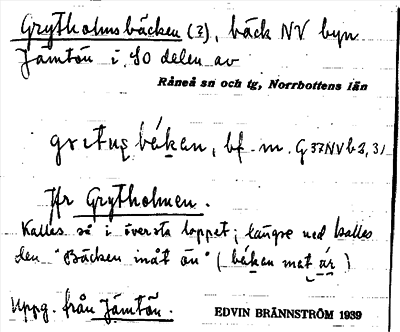 Grytholmsbäcken (3), bäck NV byn
Jämtön i SO delen av
Råneå sn och tg, Norrbottens län
bf. m. G 37 NV b 2, 3
Jfr Grytholmen.
Kallas så i översta loppet; längre ned kallas
den "Bäcken inåt ön" (
Uppg. från Jämtön.
EDVIN BRÄNNSTRÖM 1939